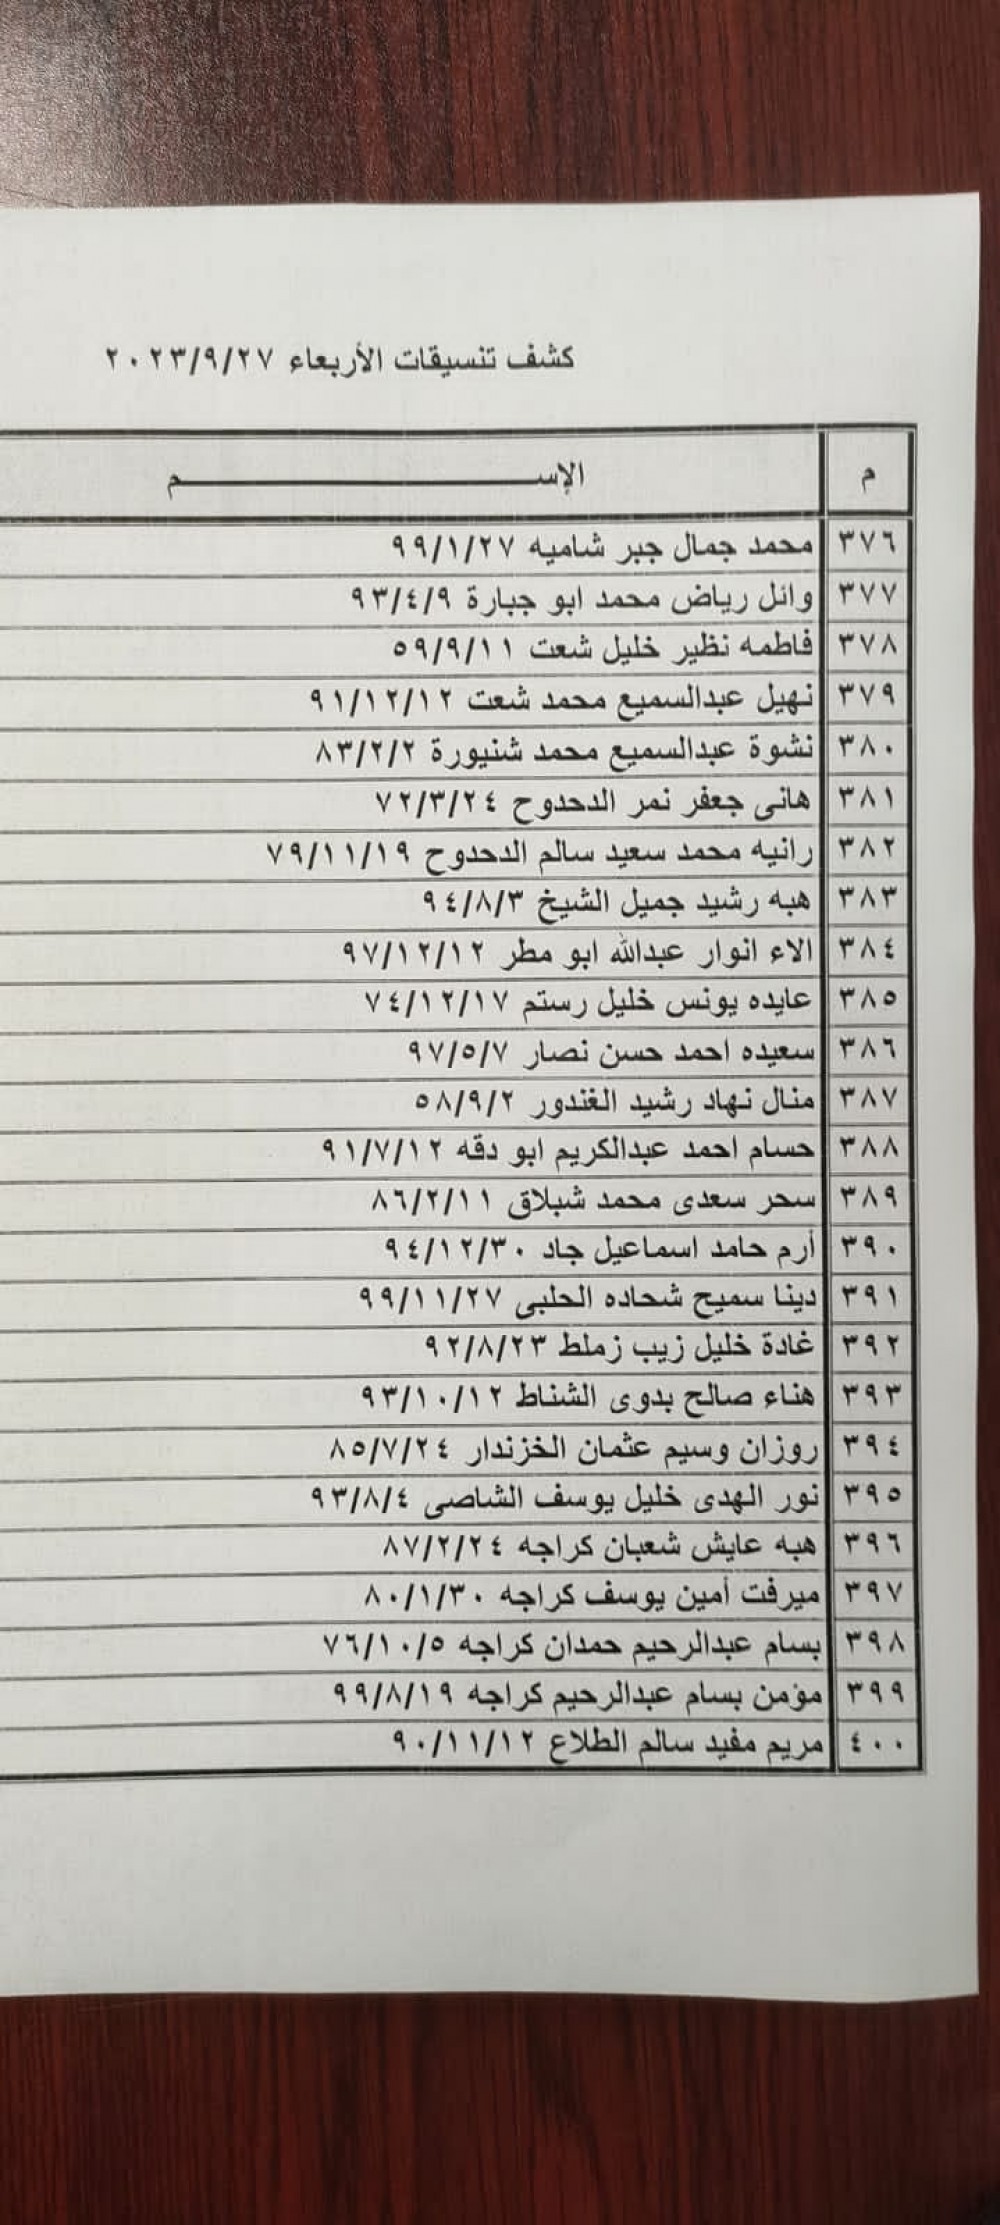 كشف تنسيقات الأربعاء ٢٠٢٣/٩/٢٧
م الإســـــــــــــــم
٣٧٦ محمد جمال جبر شاميه ٩٩/١/٢٧
٣٧٧ وائل رياض محمد ابو جبارة ٩٣/٤/٩
٣٧٨ فاطمه نظير خليل شعت ٥٩/٩/١١
٣٧٩ نهيل عبدالسميع محمد شعت ٩١/١٢/١٢
٣٨٠ نشوة عبدالسميع محمد شنيورة ٨٣/٢/٢
٣٨١ هانى جعفر نمر الدحدوح ٧٢/٣/٢٤
٣٨٢ رانيه محمد سعيد سالم الدحدوح ٧٩/١١/١٩
٣٨٣ هبه رشيد جميل الشيخ ٩٤/٨/٣
٣٨٤ الاء انوار عبدالله ابو مطر ٩٧/١٢/١٢
٣٨٥ عايده يونس خليل رستم ٧٤/١٢/١٧
٣٨٦ سعيده احمد حسن نصار ٩٧/٥/٧
٣٨٧ منال نهاد رشيد الغندور ٥٨/٩/٢
٣٨٨ حسام احمد عبدالكريم ابو دقه ٩١/٧/١٢
٣٨٩ سحر سعدى محمد شبلاق ٨٦/٢/١١
٣٩٠ أرم حامد اسماعيل جاد ٩٤/١٢/٣٠
٣٩١ دينا سميح شحاده الحلبى ٩٩/١١/٢٧
٣٩٢ غادة خليل زيب زملط ٩٢/٨/٢٣
٣٩٣ هناء صالح بدوى الشناط ٩٣/١٠/١٢
٣٩٤ روزان وسيم عثمان الخزندار ٨٥/٧/٢٤
٣٩٥ نور الهدى خليل يوسف الشاصى ٩٣/٨/٤
٣٩٦ هبه عايش شعبان كراجه ٨٧/٢/٢٤
٣٩٧ ميرفت أمين يوسف كراجه ٨٠/١/٣٠
٣٩٨ بسام عبدالرحيم حمدان كراجه ٧٦/١٠/٥
٣٩٩ مؤمن بسام عبدالرحيم كراجه ٩٩/٨/١٩
٤٠٠ مريم مفيد سالم الطلاع ٩٠/١١/١٢